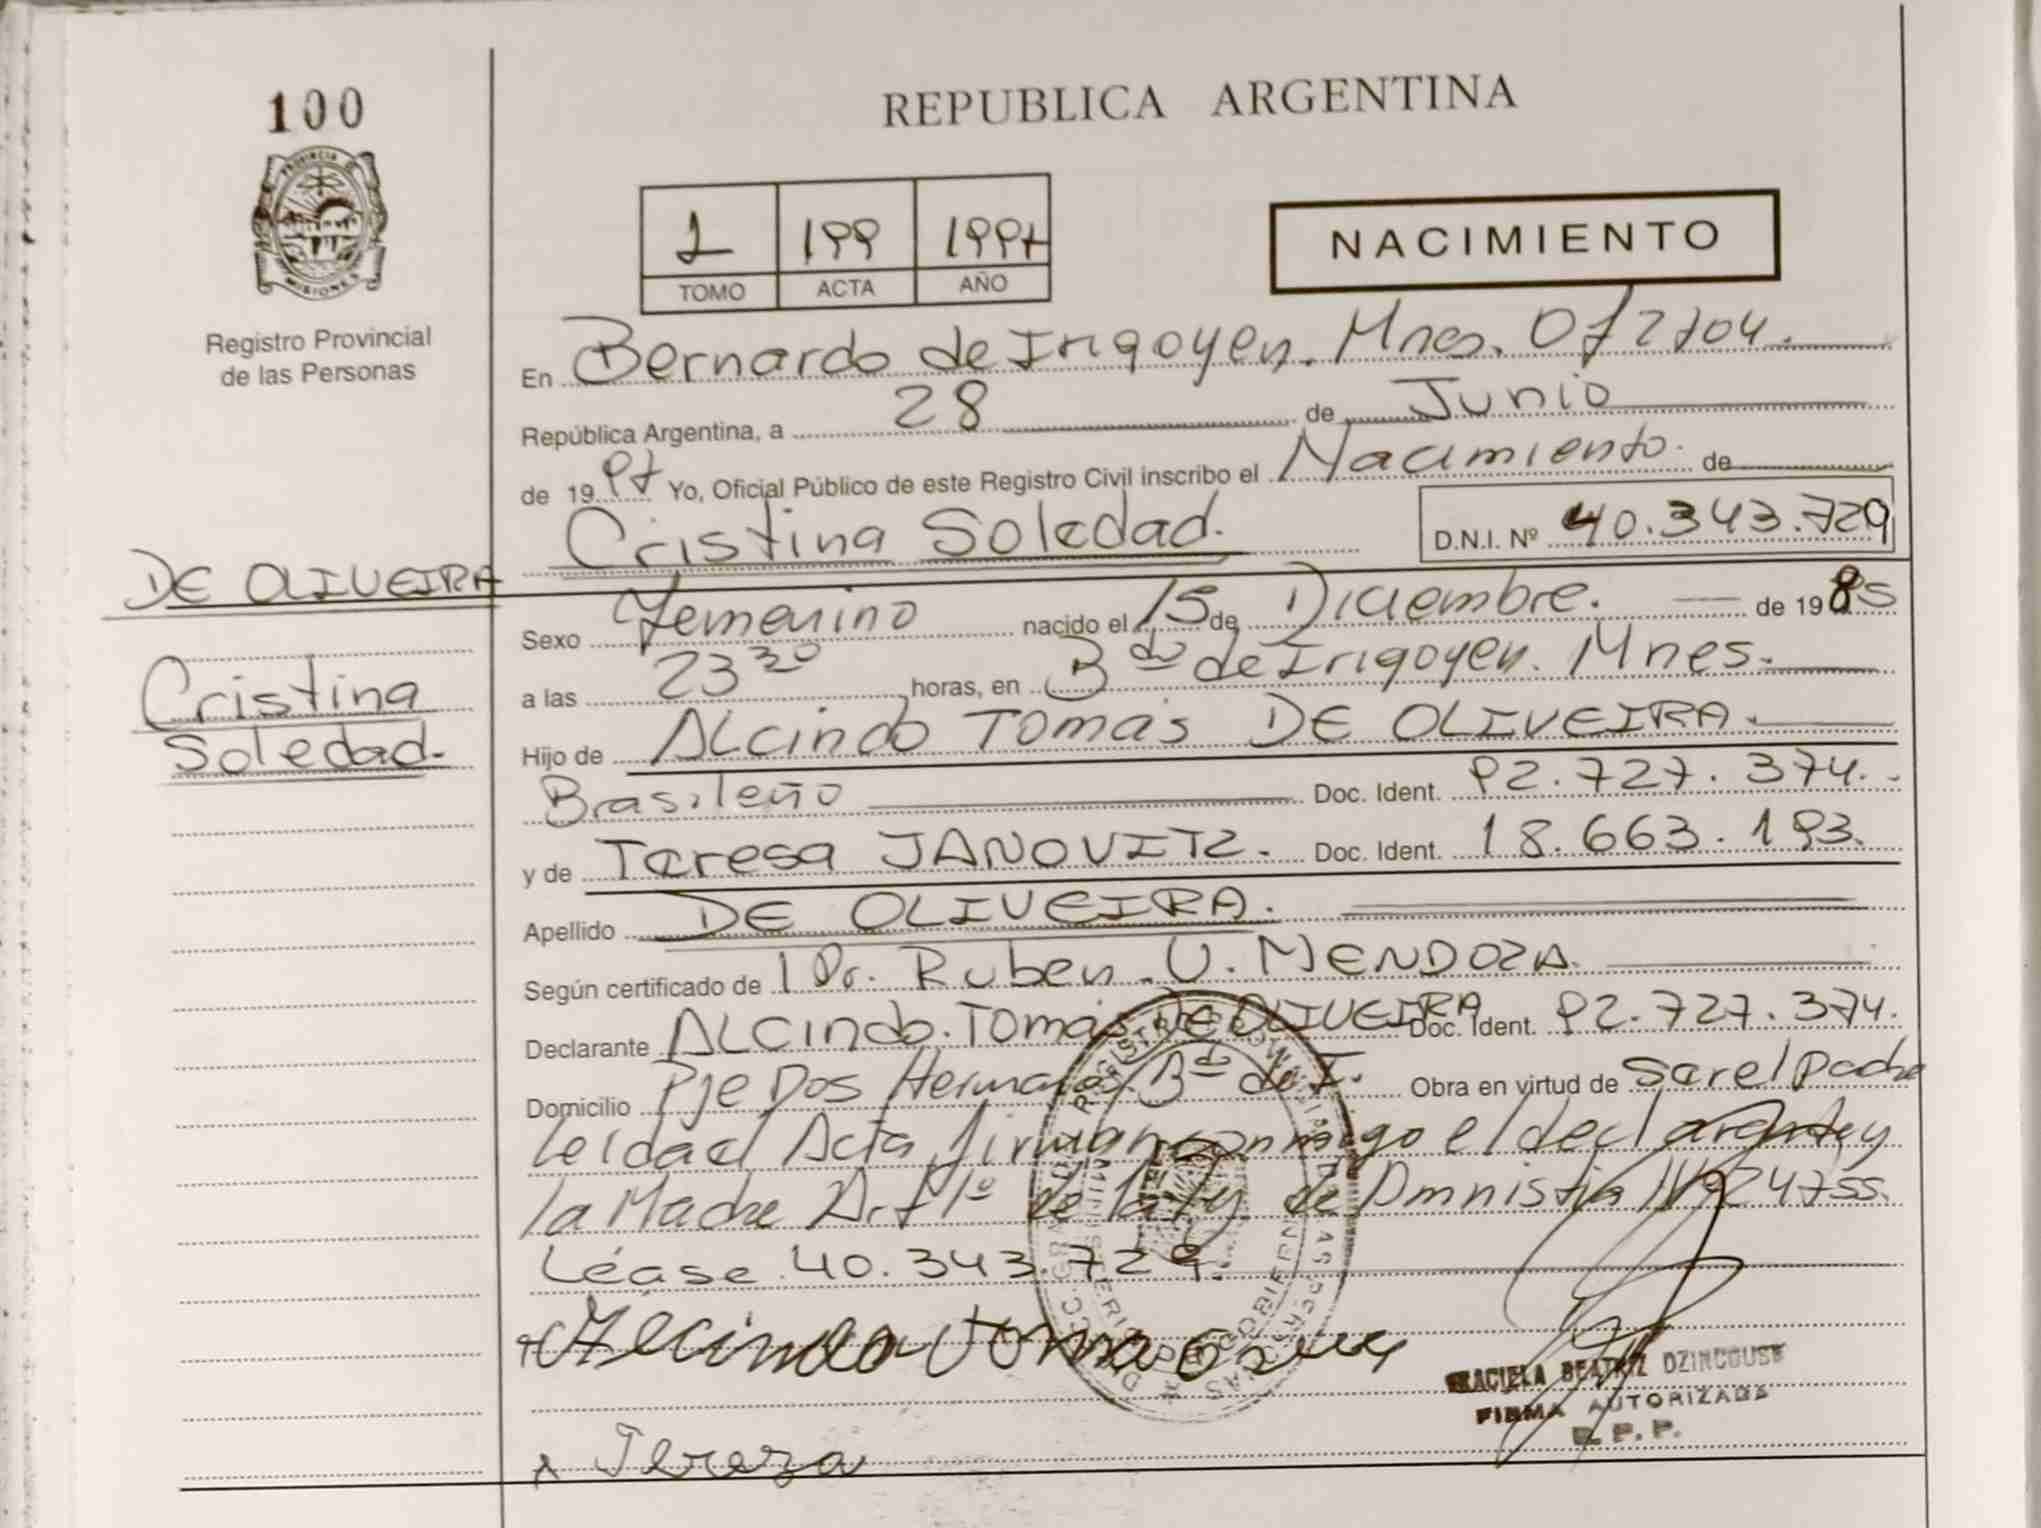 100
PROVINCIA DE MISIONES
Registro Provincial
de las Personas
DE OLIVEIRA
Cristina
Soledad.
REPUBLICA ARGENTINA
1 199 1997
TOMO ACTA AÑO
NACIMIENTO
En Bernardo de Irigoyen. Mnes. Of 2704.
República Argentina, a 28 de Junio
de 1997 Yo, Oficial Público de este Registro Civil inscribo el Nacimiento. de
Cristina Soledad. D.N.I. Nº 40.343.729
Sexo Femenino nacido el 15 de Diciembre. de 1985
a las 23 30 horas, en Bdo de Irigoyen. Mnes.
Hijo de ALcindo Tomás DE OLIVEIRA.
Brasileño Doc. Ident. 92.727.374.
y de Teresa JANOVITZ. Doc. Ident. 18.663.193.
Apellido DE OLIVEIRA.
Según certificado de l Dr. Ruben. U. MENDOZA.
Declarante ALcindo. Tomás DE OLIVEIRA Doc. Ident. 92.727.374.
Domicilio Pje Dos Hermanas Bdo de I. Obra en virtud de Ser el padre
Leída el Acta firman conmigo el declarante y
la Madre Art 1º de la ley de Amnistía Nº 24755.
Léase 40.343.729.
Tereza
GRACIELA BEATRIZ DZINCOUSK
FIRMA AUTORIZADA
R. P. P.